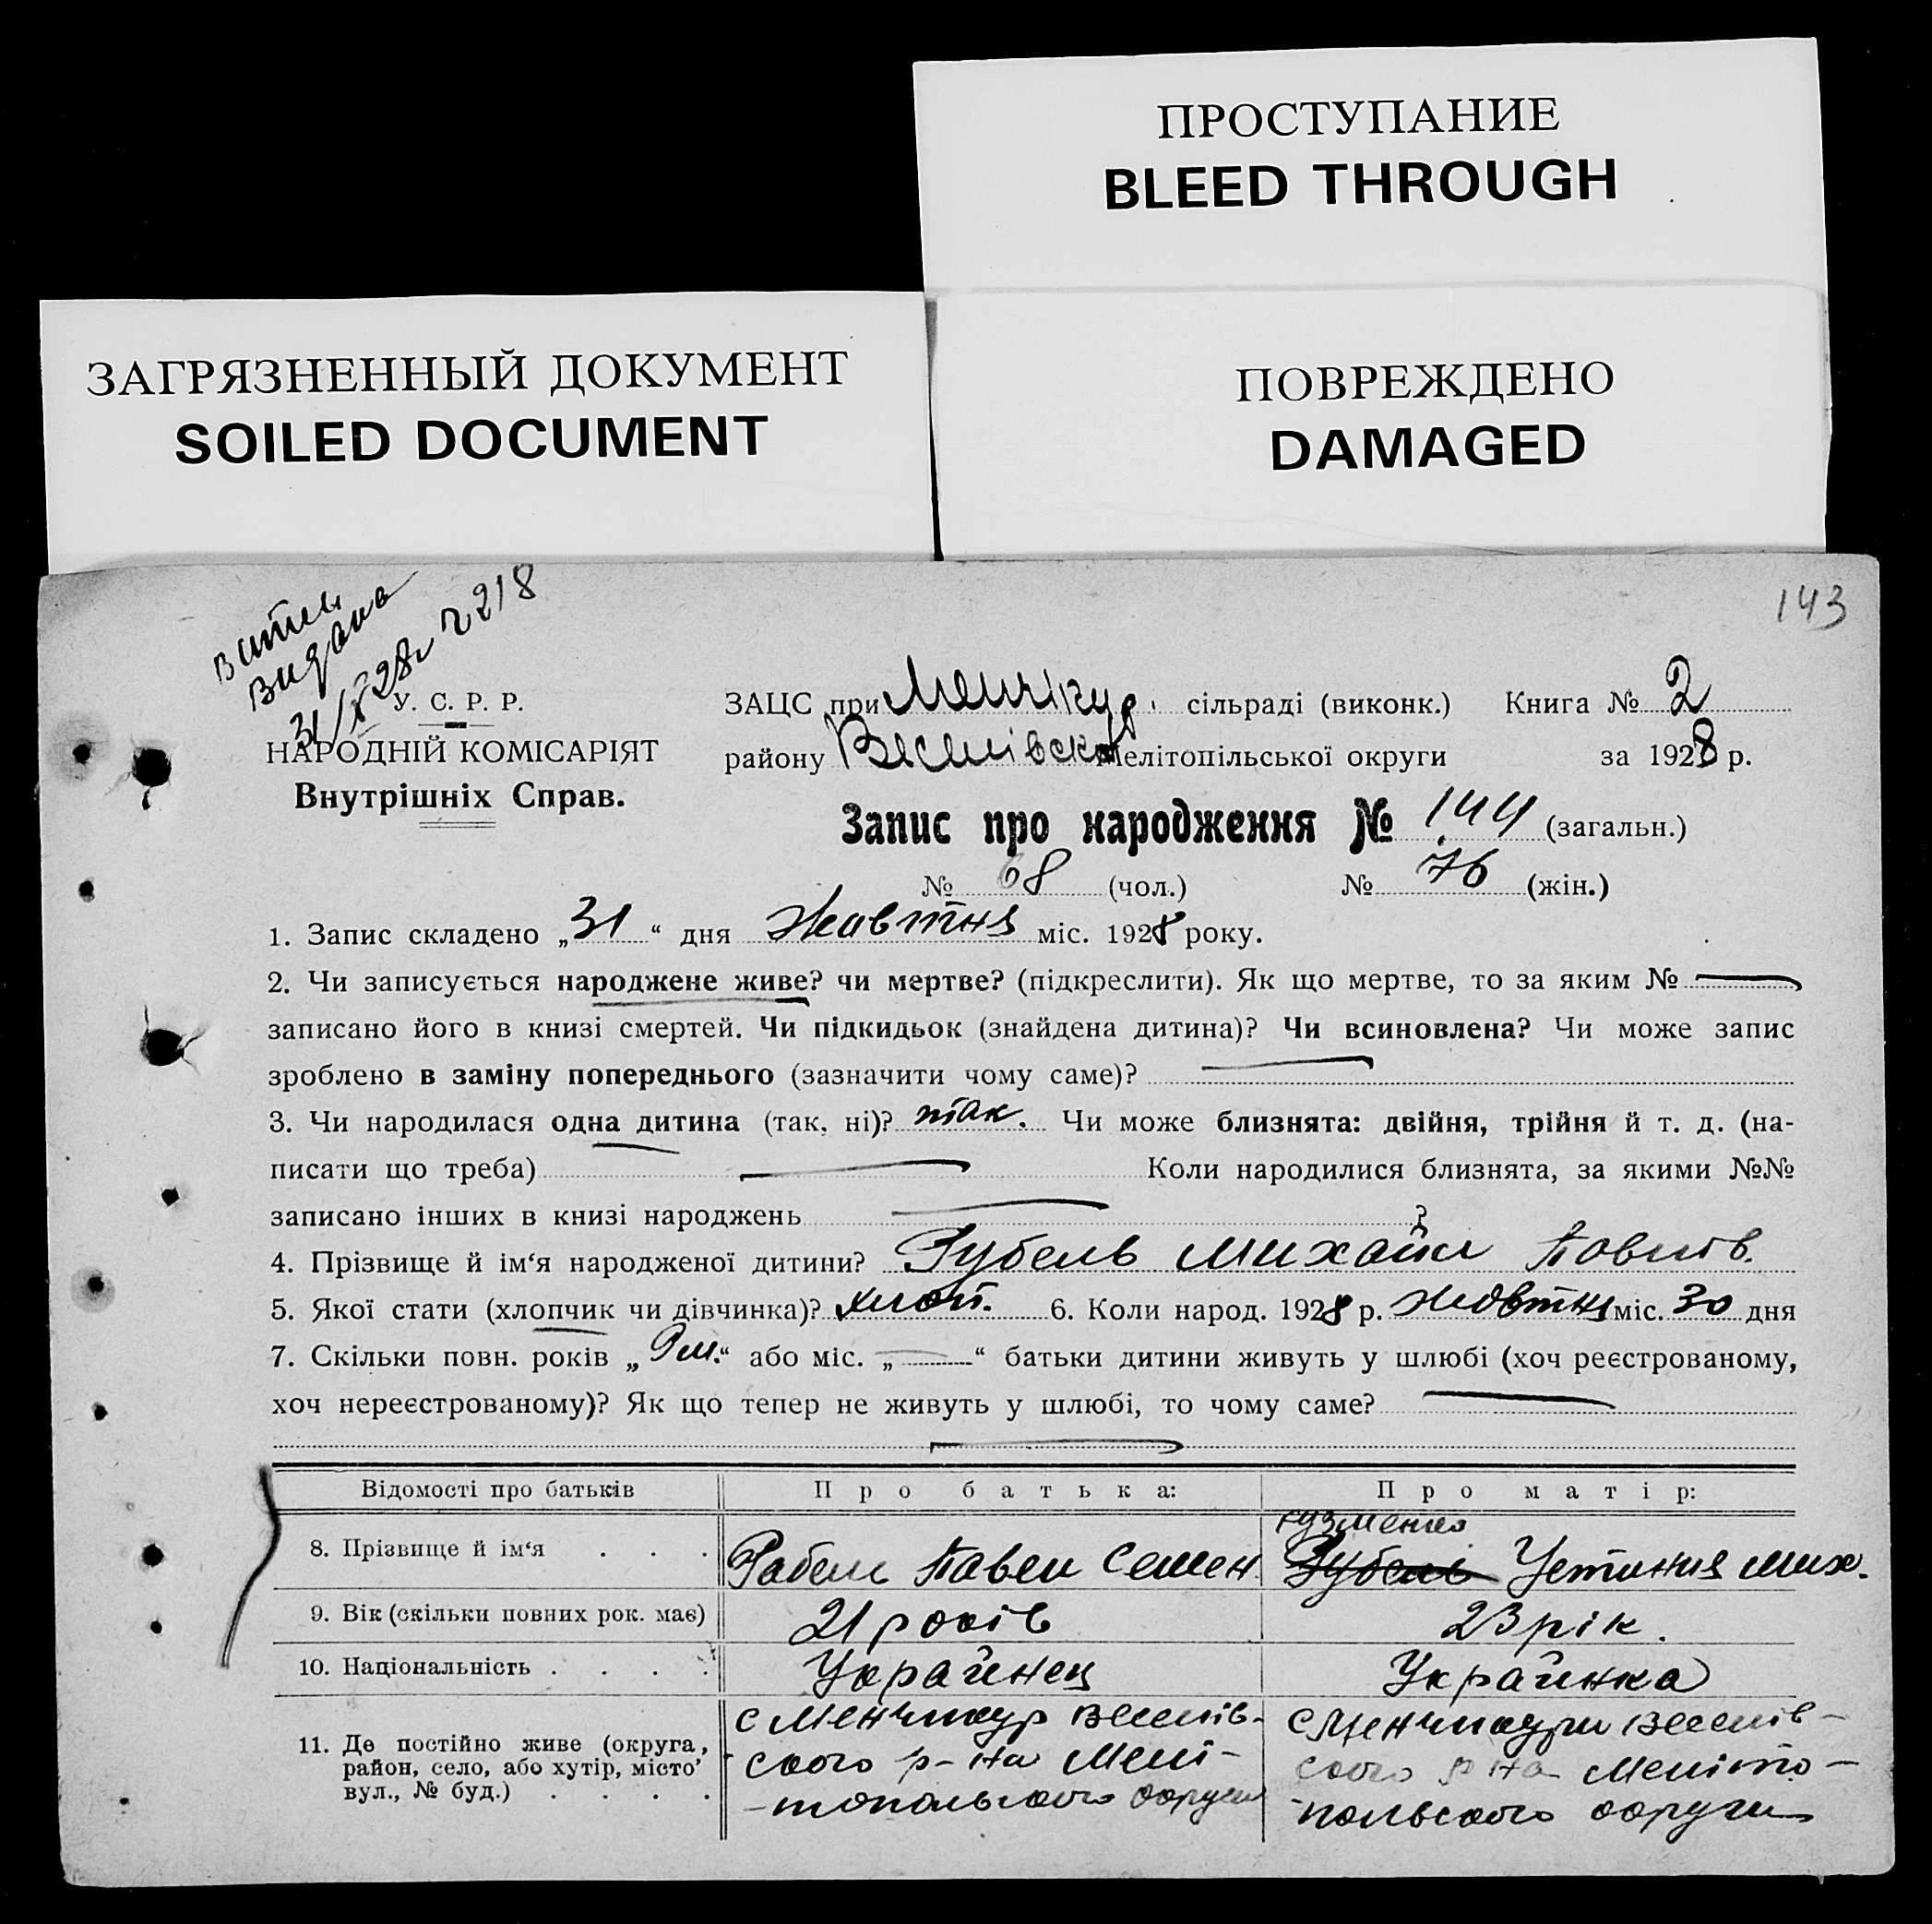 ПРОСТУПАНИЕ
BLEED THROUGH
ЗАГРЯЗНЕННЫЙ ДОКУМЕНТ
SOILED DOCUMENT
ПОВРЕЖДЕНО
DAMAGED
143
видана
31/X 28 218
У. С. Р. Р.
НАРОДНІЙ КОМІСАРІЯТ
Внутрішніх Справ.
ЗАЦС при Менчікур. сільраді (виконк.) Книга № 2
району Веселівсько Мелітопільської округи за 1928 р.
Запис про народження № 144 (загальн.)
№ 68 (чол.) № 76 (жін.)
1. Запис складено „31“ дня Жовтня міс. 1928 року.
2. Чи записується народжене живе? чи мертве? (підкреслити). Як що мертве, то за яким №
записано його в книзі смертей. Чи підкидьок (знайдена дитина)? Чи всиновлена? Чи може запис
зроблено в заміну попереднього (зазначити чому саме)?
3. Чи народилася одна дитина (так, ні)? так. Чи може близнята: двійня, трійня й т. д. (на-
писати що треба) Коли народилися близнята, за якими №№
записано інших в книзі народжень ?
4. Прізвище й ім‘я народженої дитини? Рубель Михайл Павлов.
5. Якої стати (хлопчик чи дівчинка)? хлоп. 6. Коли народ. 1928 р. Жовтня міс. 30 дня
7. Скільки повн. років „ “ або міс. „ “ батьки дитини живуть у шлюбі (хоч реєстрованому,
хоч нереєстрованому)? Як що тепер не живуть у шлюбі, то чому саме?
Відомості про батьків Про батька: Про матір:
Кузменко
8. Прізвище й ім‘я . . . Рабель Павел Семен. Рубель Устиния Мих.
9. Вік (скільки повних рок. має) 21 років 23 рік.
10. Національність . . . . Українец Українка
11. Де постійно живе (округа, район, село, або хутір, місто’ вул., № буд.) . . . .
с Менчикур Веселів-
ского р-на Мелі-
-топольского округи
с Менчикури Веселів-
ского р на Меліто-
польского округи